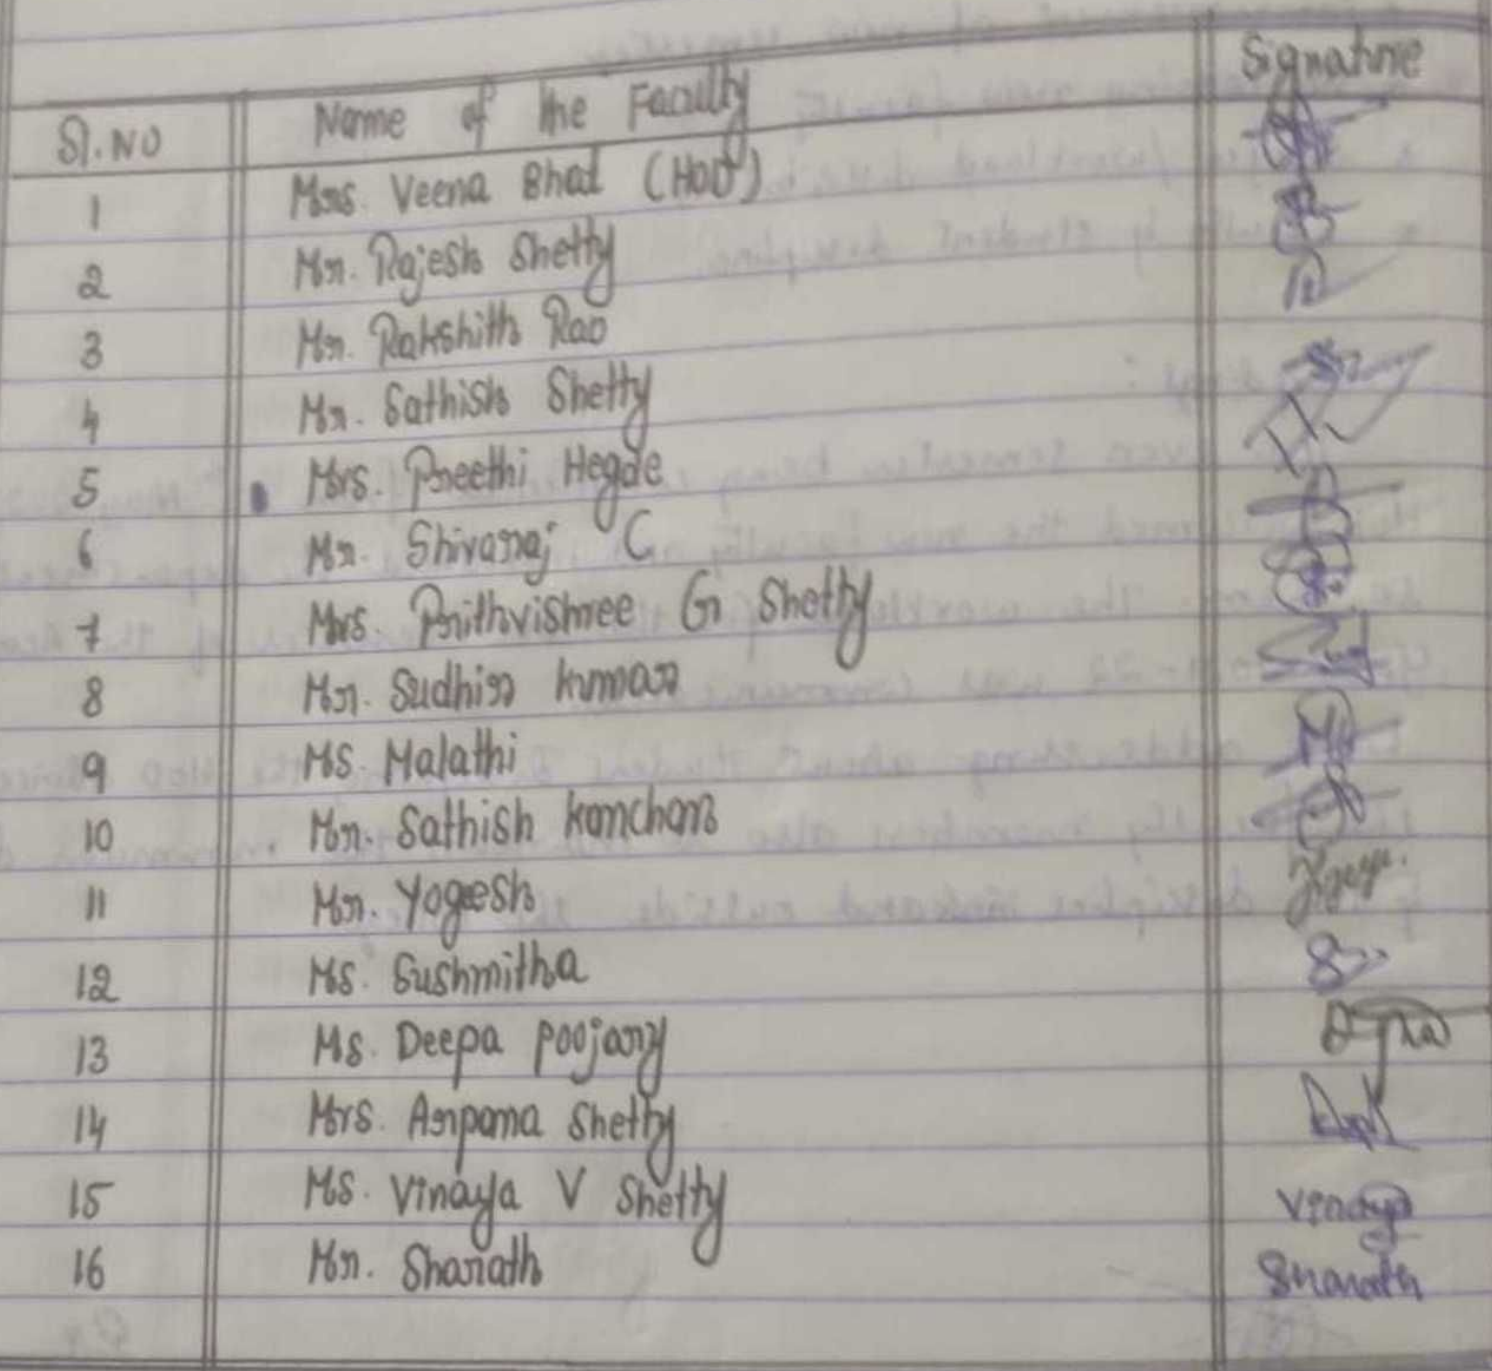 Sl.No Name of the Faculty Signature
1 Mrs. Veena Bhat (HOD)
2 Mr. Rajesh Shetty
3 Mr. Rakshith Rao
4 Mr. Sathish Shetty
5 Mrs. Preethi Hegde
6 Mr. Shivaraj C
7 Mrs. Prithvishree G Shetty
8 Mr. Sudhir kumar
9 Ms. Malathi
10 Mr. Sathish kanchan
11 Mr. Yogeesh
12 Ms. Sushmitha
13 Ms. Deepa poojary
14 Mrs. Anpama Shetty
15 Ms. Vinaya V Shetty Vinaya
16 Mr. Sharath Sharath